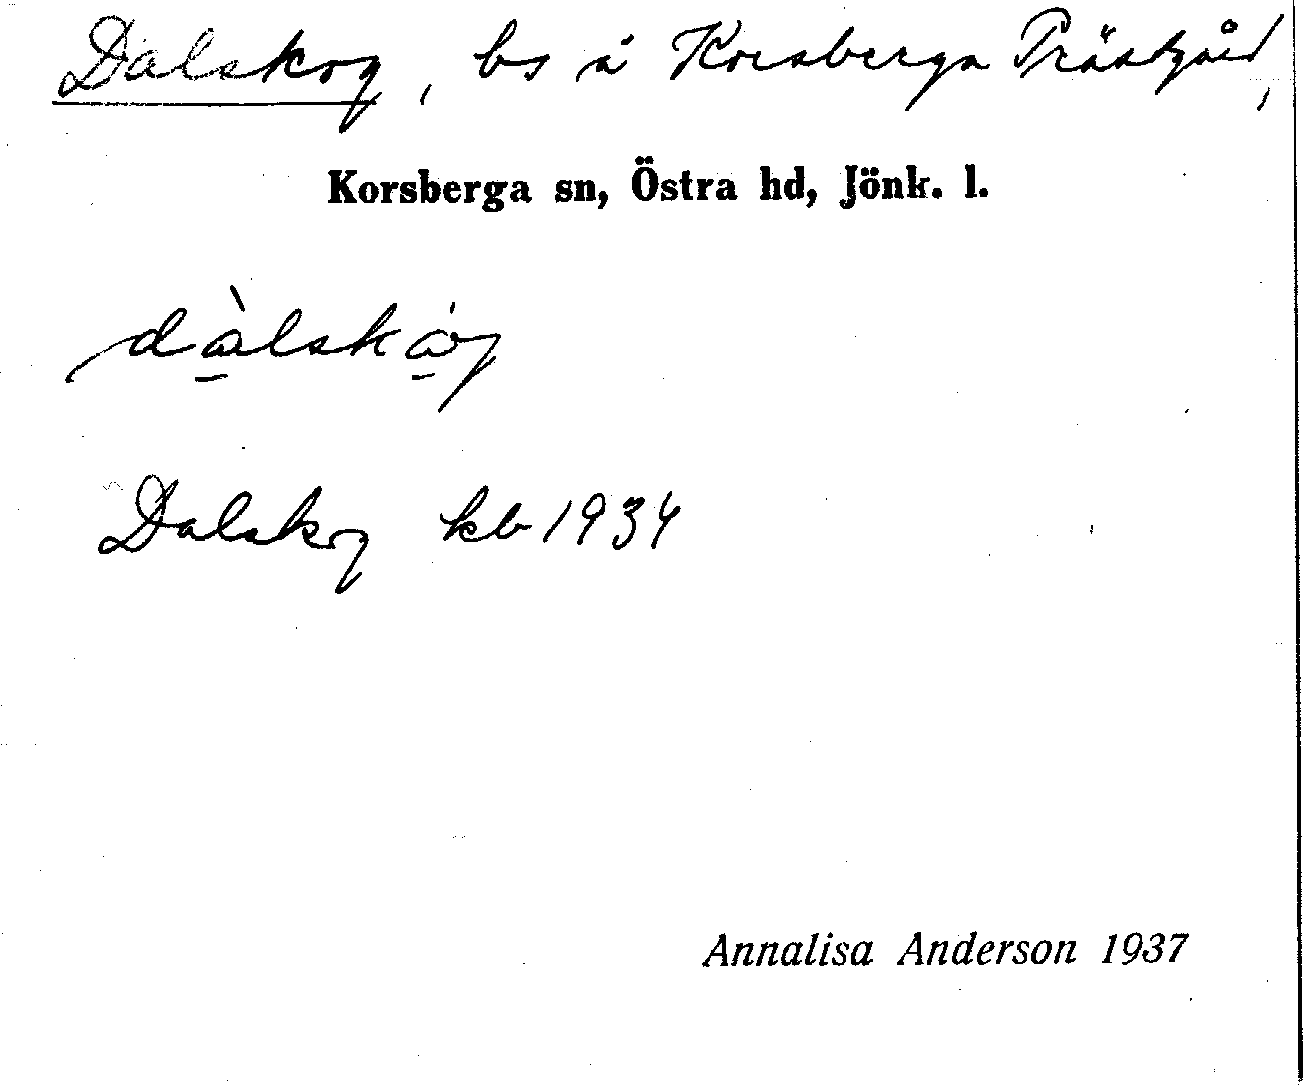 Dalskog, bs å Korsberga Prästgård,
Korsberga sn, Östra hd, Jönk. l.
dàlskåg
Dalskog kb 1934
Annalisa Anderson 1937